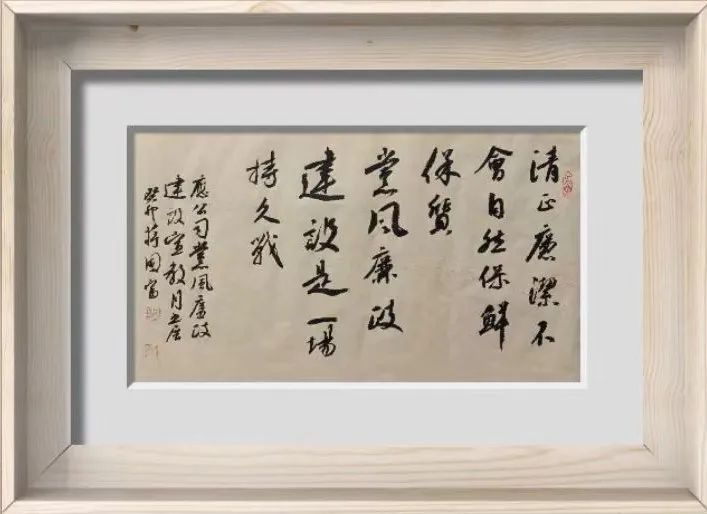 清正廉潔不
會自然保鮮
保質
党風廉政
建設是一場
持久戰
應公司党風廉政
建設宣教月
癸卯蔣國富